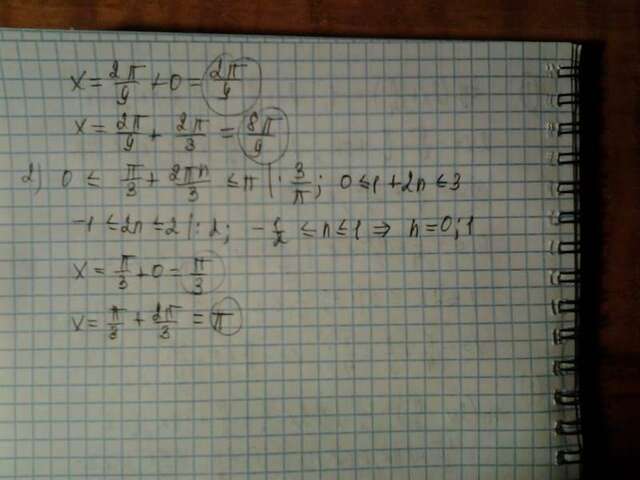 x = 2π/9 + 0 = 2π/9
x = 2π/9 + 2π/3 = 8π/9
2) 0 ≤ π/3 + 2πn/3 ≤ π | · 3/π; 0 ≤ 1 + 2n ≤ 3
-1 ≤ 2n ≤ 2 | : 2; -1/2 ≤ n ≤ 1 ⇒ n = 0; 1
x = π/3 + 0 = π/3
x = π/3 + 2π/3 = π